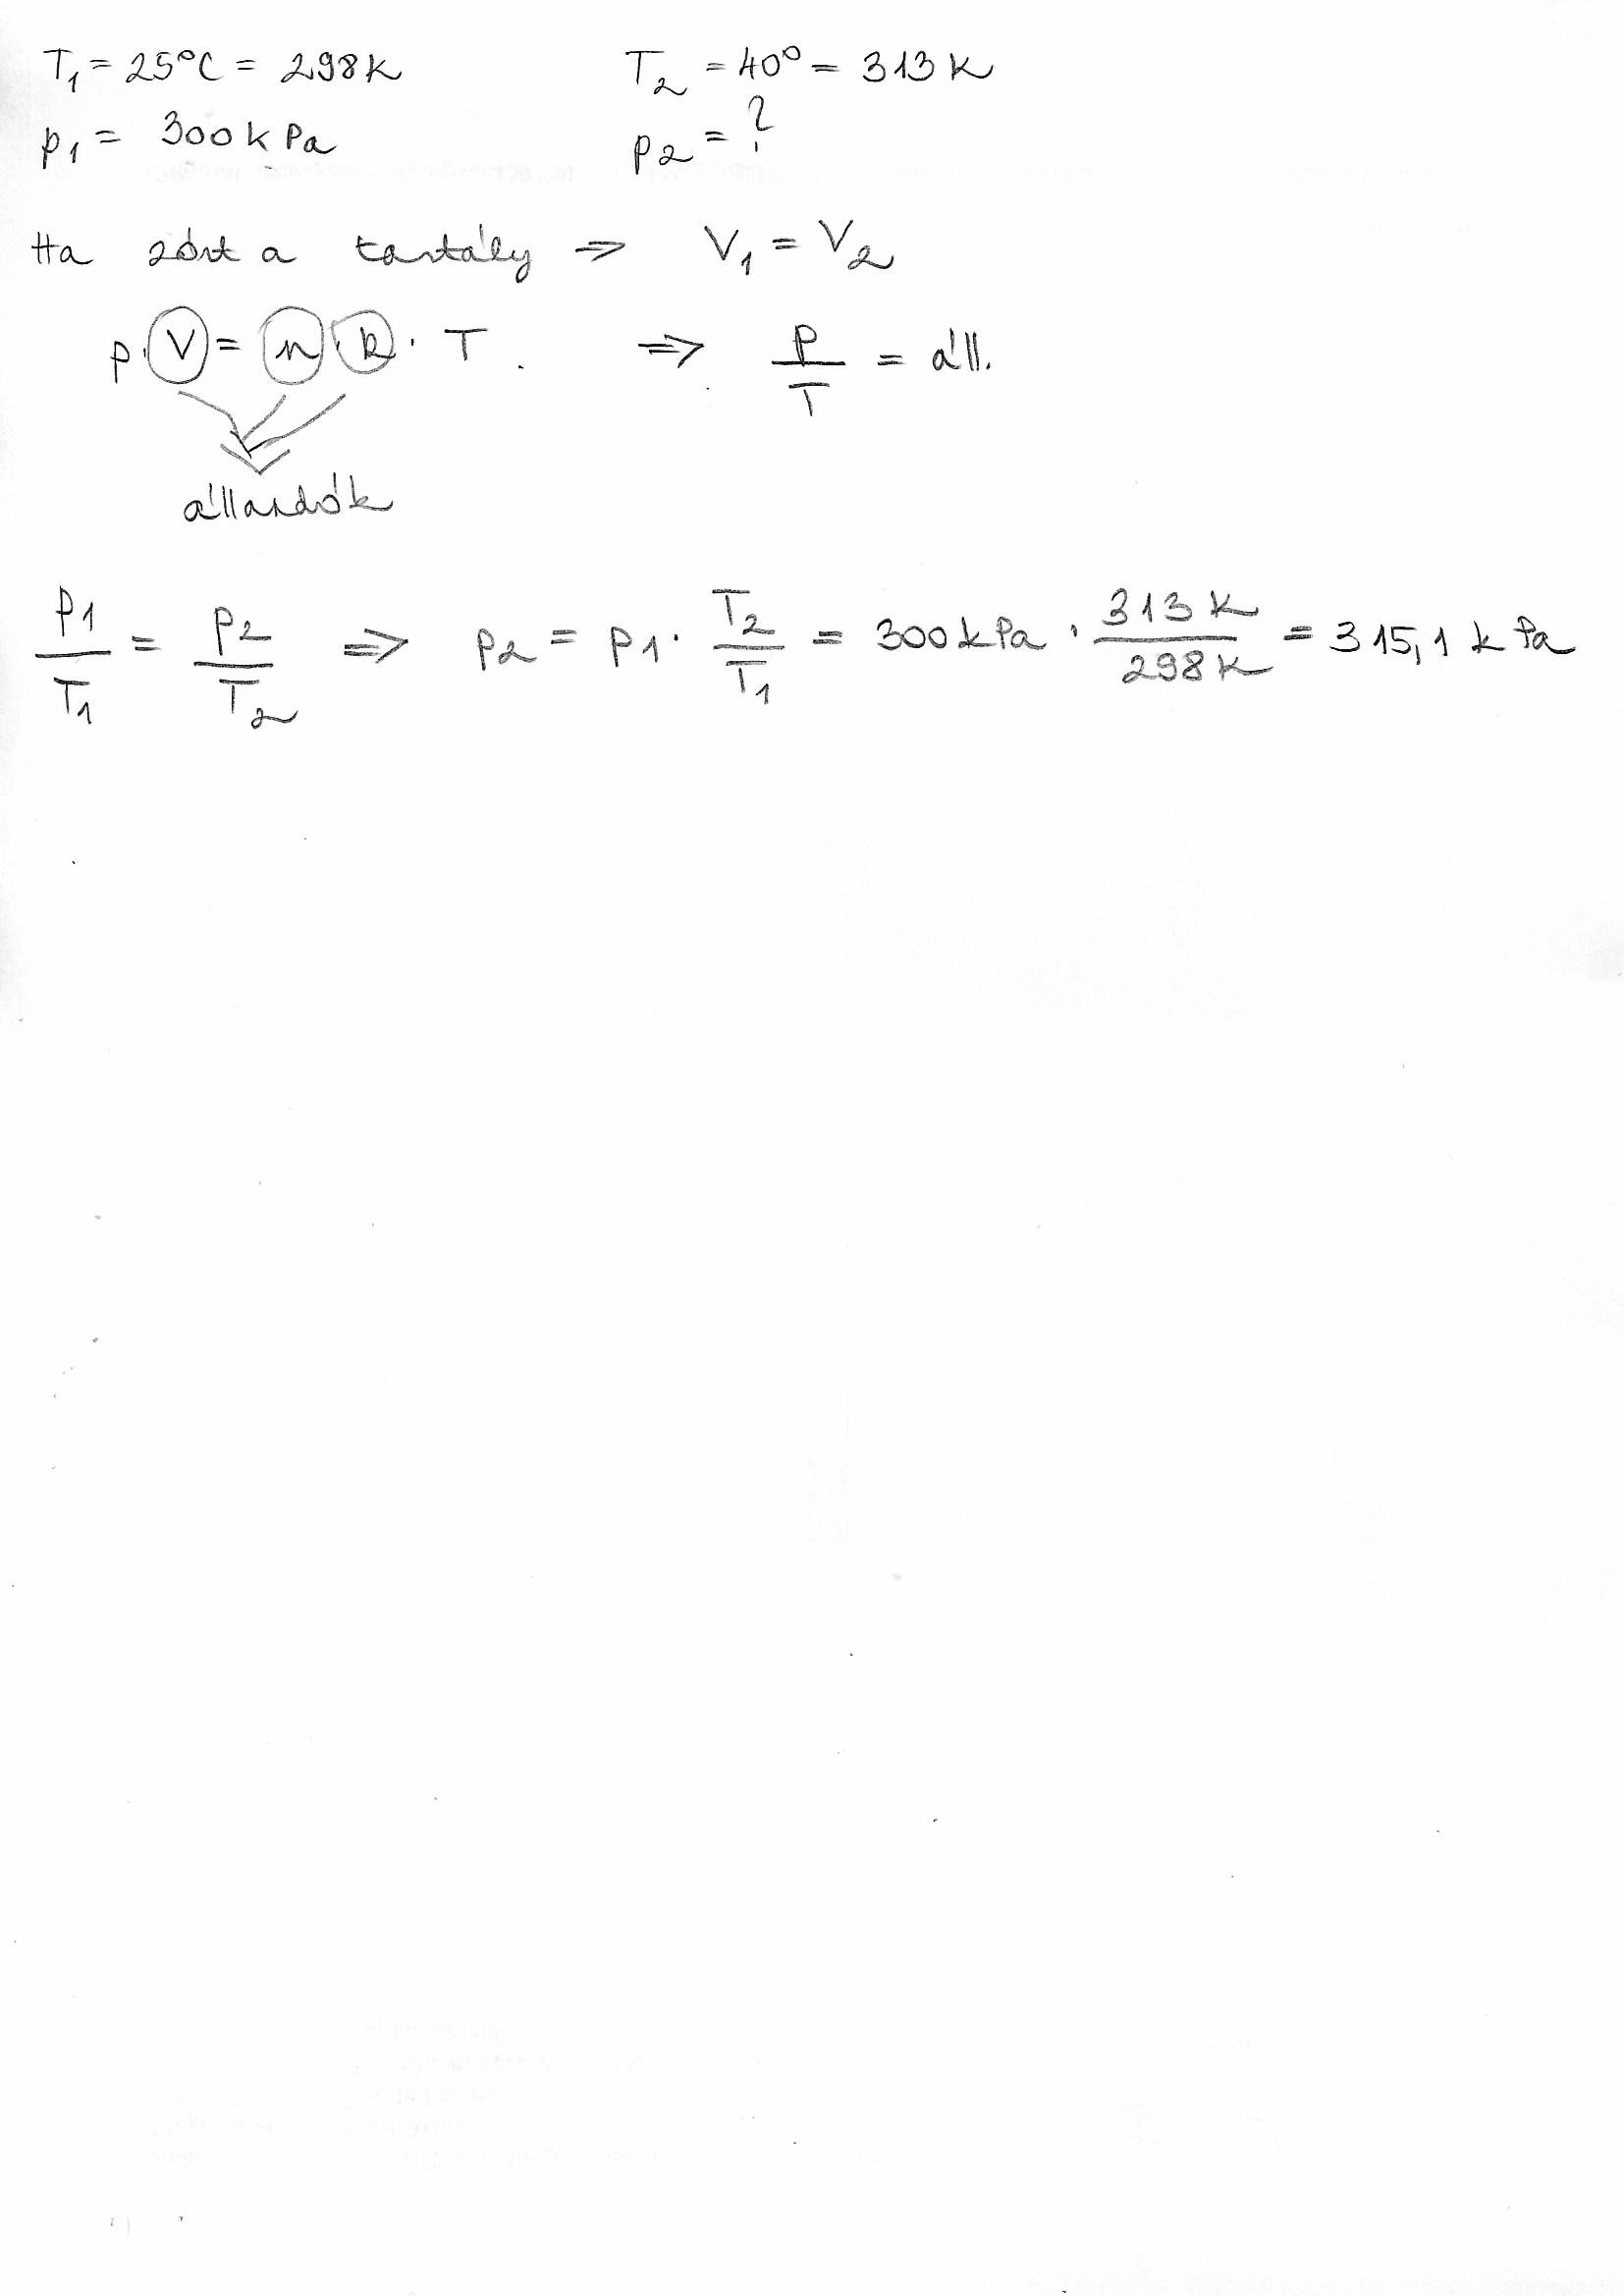 T₁ = 25°C = 298K T₂ = 40° = 313 K
p₁ = 300 k Pa p₂ = ?
Ha zárt a tartály ⇒ V₁ = V₂
p · V = n · R · T ⇒ p/T = áll.
állandók
p₁/T₁ = p₂/T₂ ⇒ p₂ = p₁ · T₂/T₁ = 300 kPa · 313 K/298 K = 315,1 k Pa